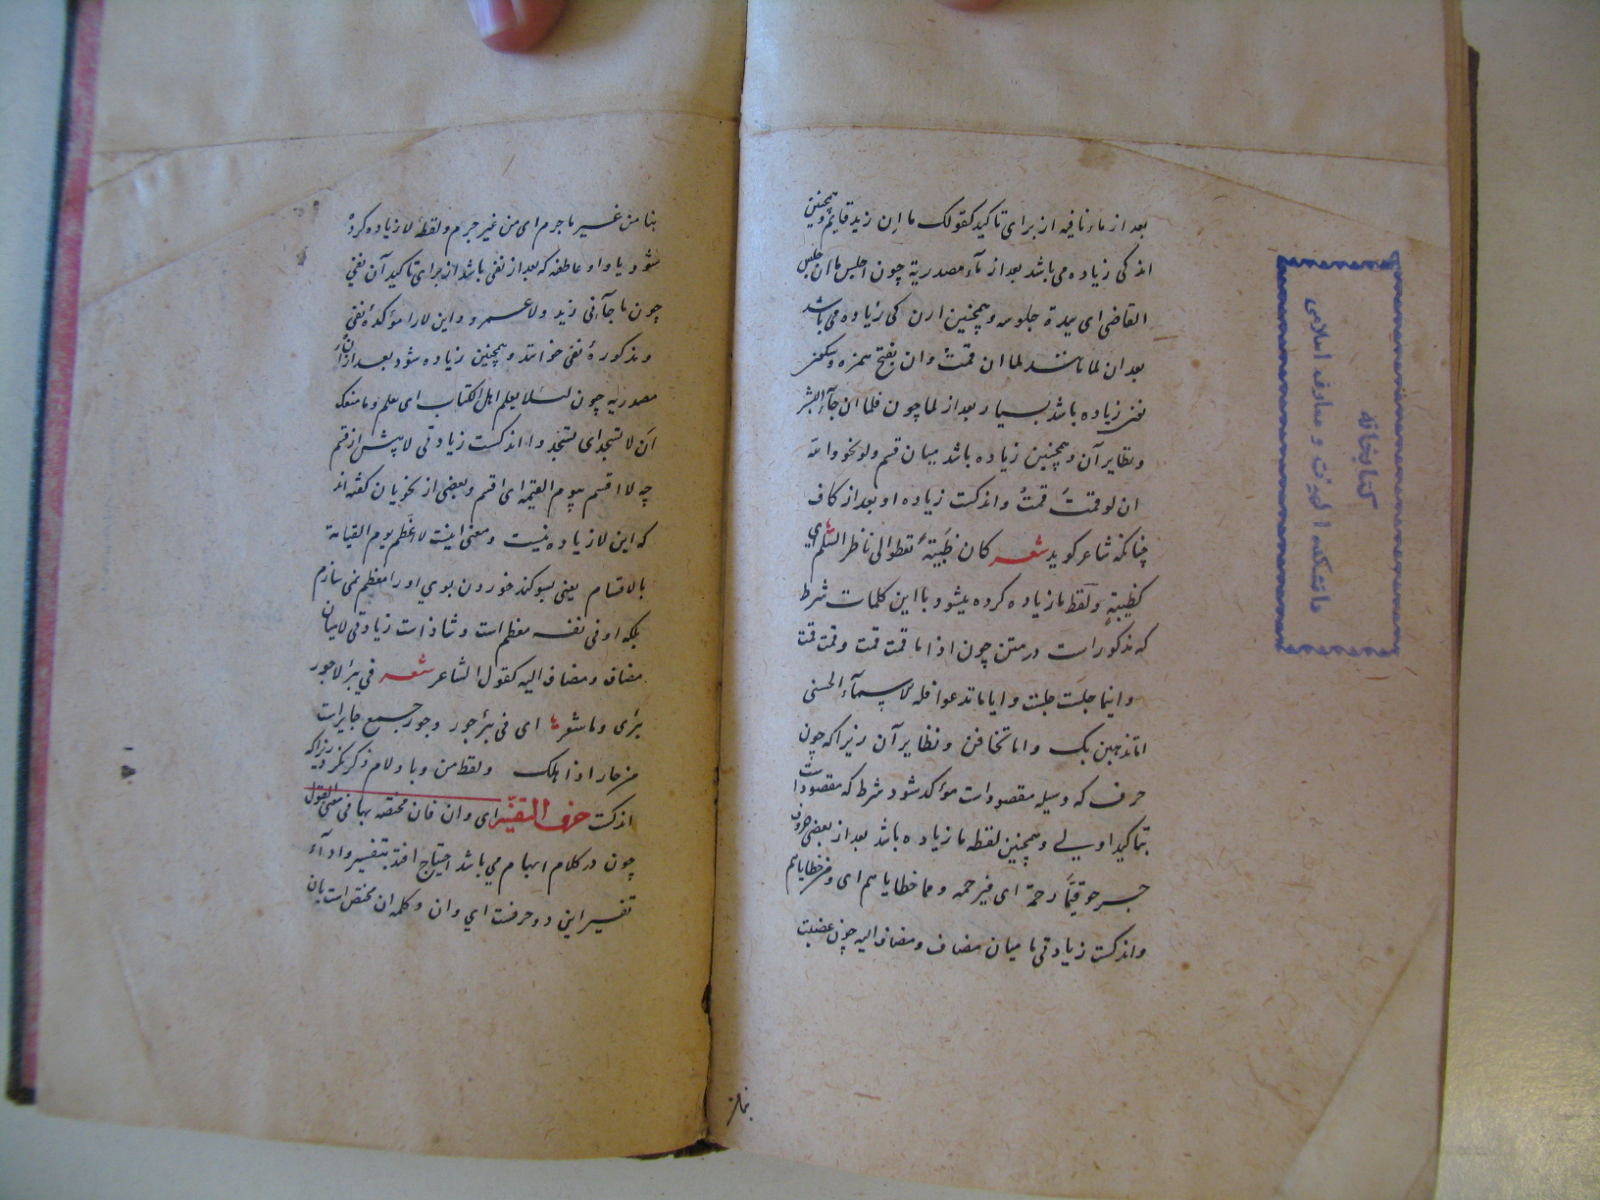 بعد از ماء نافیه از برای تاکید کقولک ما ان زید قایم و همچنین
اندکی زیاده می باشد بعد از ماء مصدریة چون اجلس ما ان جلس
القاضی ای مدة جلوسه و همچنین ان کی زیاده می باشد
بعد ان لما مانند لما ان قمت و ان بفتح همزه و سکون
نون زیاده باشد بسیار بعد از لما چون فلما ان جاء البشیر
و نظایر آن و همچنین زیاده باشد میان قسم و لو نحو والله
ان لو قمت قمت و اندکست زیاده او بعد از کاف
چنانکه شاعر کوید شعر کان ظبیة تعطو الی ناظر السلم ای
کظبیة و لفظ ما زیاده کرده میشود با این کلمات شرط
که مذکور است در متن چون اذا ما قمت قمت و
و اینما جلست جلست و ایاما تدعوا فله الاسمآء الحسنی
اما تذهبن بک و اما تخافن و نظایر آن زیرا که چون
حرف که وسیله مقصود است مؤکد شود شرط که مقصود است
بتاکید اولی و همچنین لفظه ما زیاده باشد بعد از بعضی حروف
جر نحو فبما رحمة ای فبرحمة و مما خطایاهم ای و من خطایاهم
و اندکست زیادتی ما میان مضاف و مضاف الیه چون غضبت
کتابخانه
دانشکده الهیات و معارف اسلامی
بنا من غیر ما جرم ای من غیر جرم و لفظه لا زیاده کرده
شود با واو عاطفه که بعد از نفی باشد از برای تاکید آن نفی
چون ما جآءنی زید و لا عمرو و این لا را مؤکدهٔ نفی
و مذکورهٔ نفی خوانند و همچنین زیاده شود بعد از ان
مصدریه چون لئلا یعلم اهل الکتاب ای یعلم و ما منعک
ان لا تسجد ای تسجد و اندکست زیادتی لا پیش از قسم
چه لا اقسم بیوم القیمه ای اقسم و بعضی از نحویان کفته اند
که این لا زیاده نیست و معنی اینست لا اعظم یوم القیامة
بالاقسام یعنی بسوکند خوردن بوی او را معظم نمی سازم
بلکه او فی نفسه معظم است و شاذ است زیادتی لا میان
مضاف و مضاف الیه کقول الشاعر شعر فی بئر لا حور
سری و ما شعر ای فی بئر حور و حور جمع حایر است
من حار اذا هلک و لفظ من و با و لام ذکر نکرد زیرا که
اندکست حرف التفسیر ای و ان فان مختصه بما فی معنی القول
چون در کلام ابهام می باشد احتیاج افتد بتفسیر و ادآء
تفسیر این دو حرفست ای و ان و کلمه ان مختص است بان